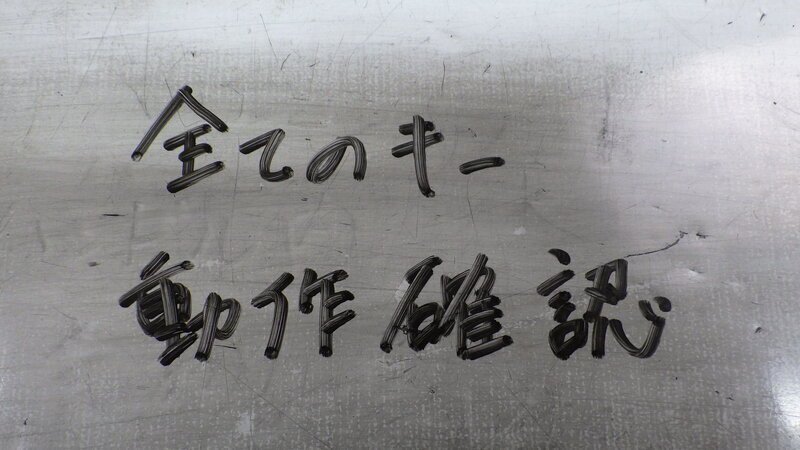 全てのキー
動作確認